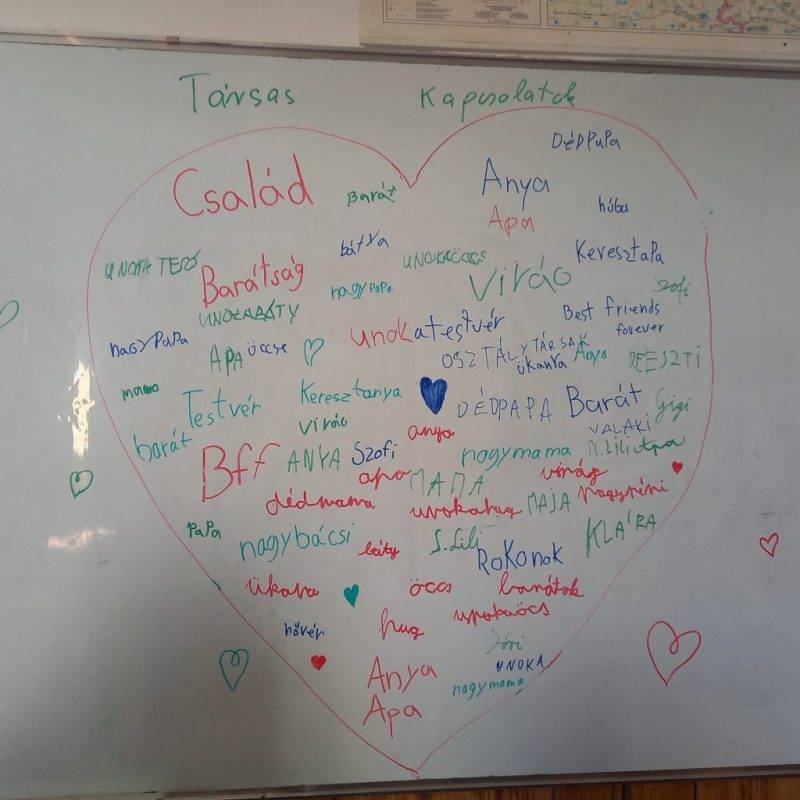 Társas Kapcsolatok
DÉDPAPA
Család
Barát
Anya
Apa
húba
bátya
Keresztapa
UNOKATESÓ
Barátság
UNOKAÖCCS
Virág
nagypapa
Szofi
UNOKABÁTY
Best friends
forever
nagypapa
APA
öccse
unokatestvér
OSZTÁLYTÁRSAK
ükanya
Anya
mama
Testvér
Keresztanya
DÉDPAPA
Barát
Gigi
virág
VALAKI
barát
anya
Bff
ANYA
Szofi
nagymama
N.Lili
Apa
apa
MAMA
virág
dédmama
unokahug
MAJA
nagynéni
PaPa
nagybácsi
báty
S.Lili
Rokonok
KLÁRA
ükapa
öccs
barátok
unokaöcs
nővér
hug
Dóri
UNOKA
Anya
nagymama
Apa